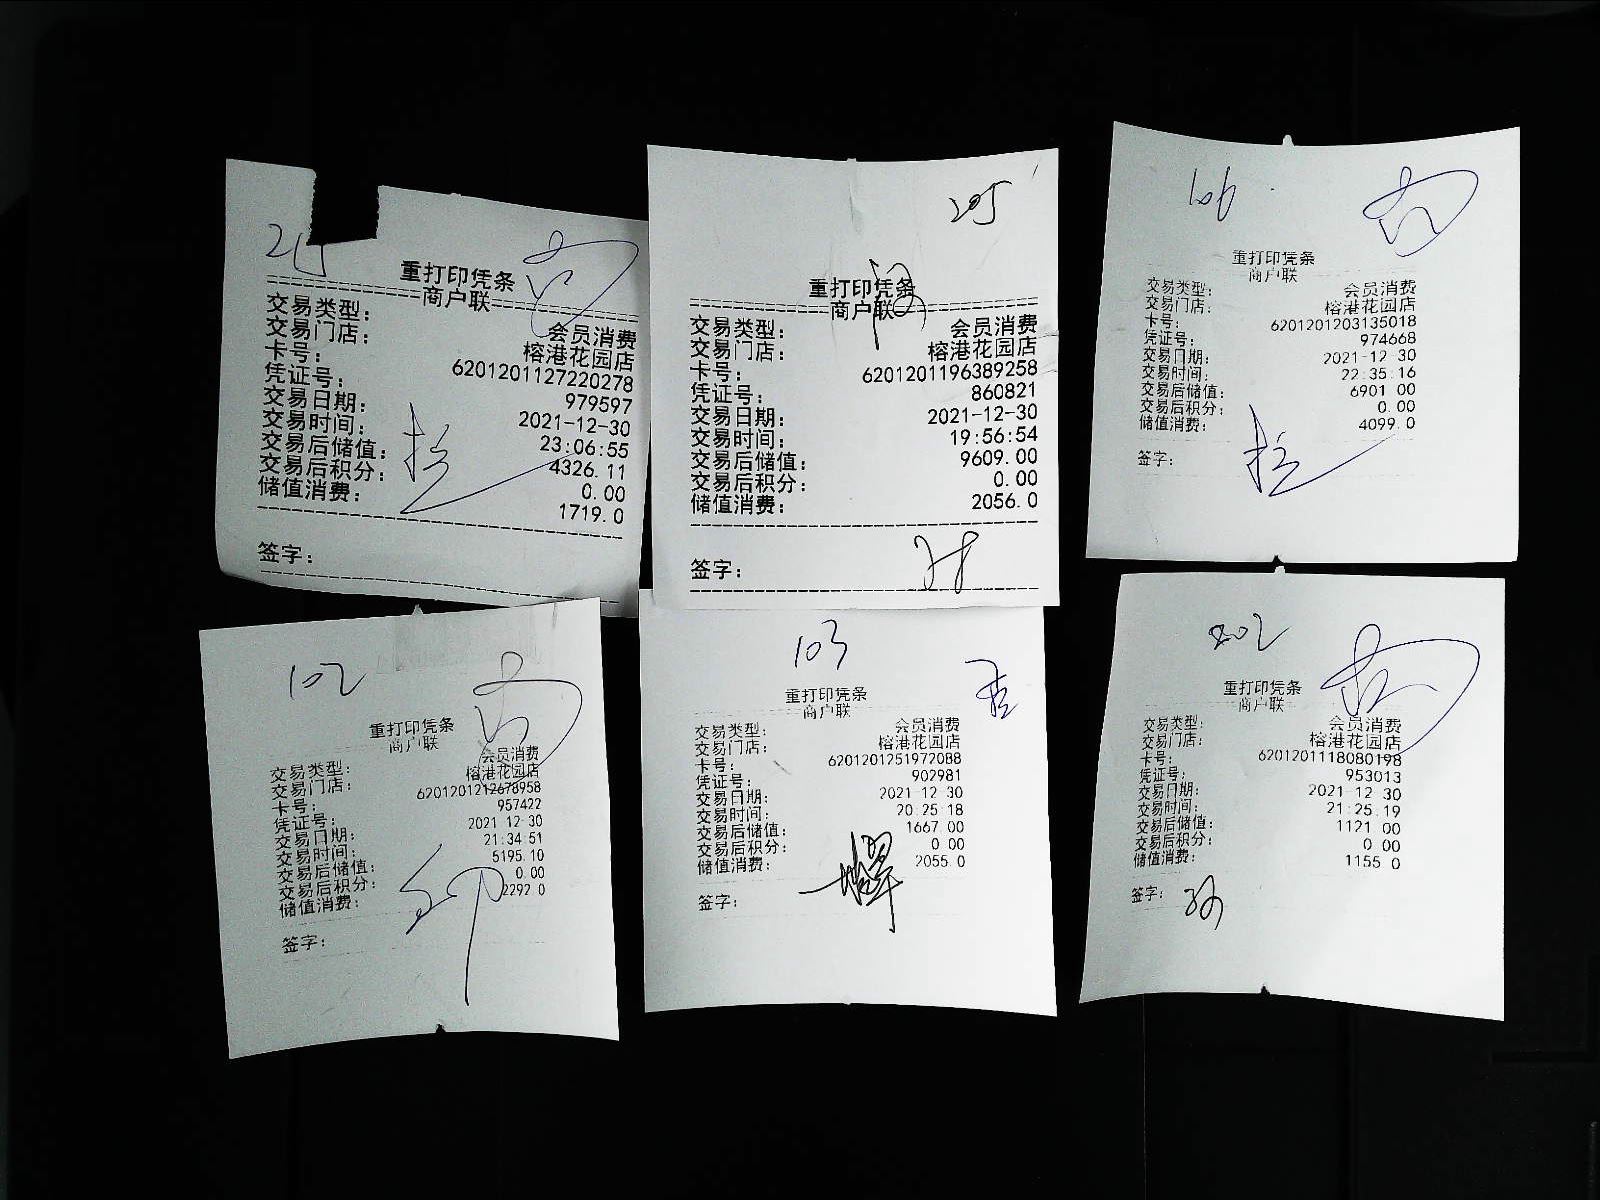 重打印凭条
商户联
交易类型： 会员消费
交易门店： 榕港花园店
卡号： 6201201127220278
凭证号： 979597
交易日期： 2021-12-30
交易时间： 23:06:55
交易后储值： 4326.11
交易后积分： 0.00
储值消费： 1719.0
签字：
205
重打印凭条
商户联
交易类型： 会员消费
交易门店： 榕港花园店
卡号： 6201201196389258
凭证号： 860821
交易日期： 2021-12-30
交易时间： 19:56:54
交易后储值： 9609.00
交易后积分： 0.00
储值消费： 2056.0
签字：
106
重打印凭条
商户联
交易类型： 会员消费
交易门店： 榕港花园店
卡号： 6201201203135018
凭证号： 974668
交易日期： 2021-12-30
交易时间： 22:35:16
交易后储值： 6901.00
交易后积分： 0.00
储值消费： 4099.0
签字：
102
重打印凭条
商户联
交易类型： 会员消费
交易门店： 榕港花园店
卡号： 6201201212678958
凭证号： 957422
交易日期： 2021-12-30
交易时间： 21:34:51
交易后储值： 5195.10
交易后积分： 0.00
储值消费： 2292.0
签字：
103
重打印凭条
商户联
交易类型： 会员消费
交易门店： 榕港花园店
卡号： 6201201251972088
凭证号： 902981
交易日期： 2021-12-30
交易时间： 20:25:18
交易后储值： 1667.00
交易后积分： 0.00
储值消费： 2055.0
签字：
202
重打印凭条
商户联
交易类型： 会员消费
交易门店： 榕港花园店
卡号： 6201201118080198
凭证号： 953013
交易日期： 2021-12-30
交易时间： 21:25:19
交易后储值： 1121.00
交易后积分： 0.00
储值消费： 1155.0
签字：